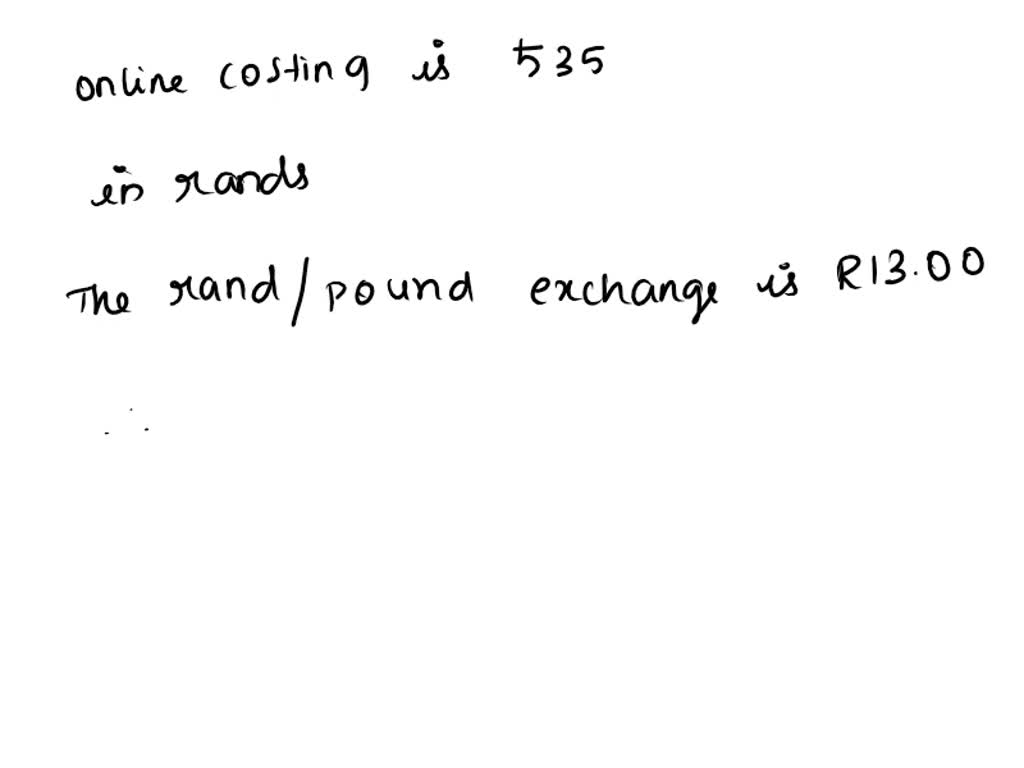 online costing is 535
in rands
The rand/pound exchange is R13.00
∴